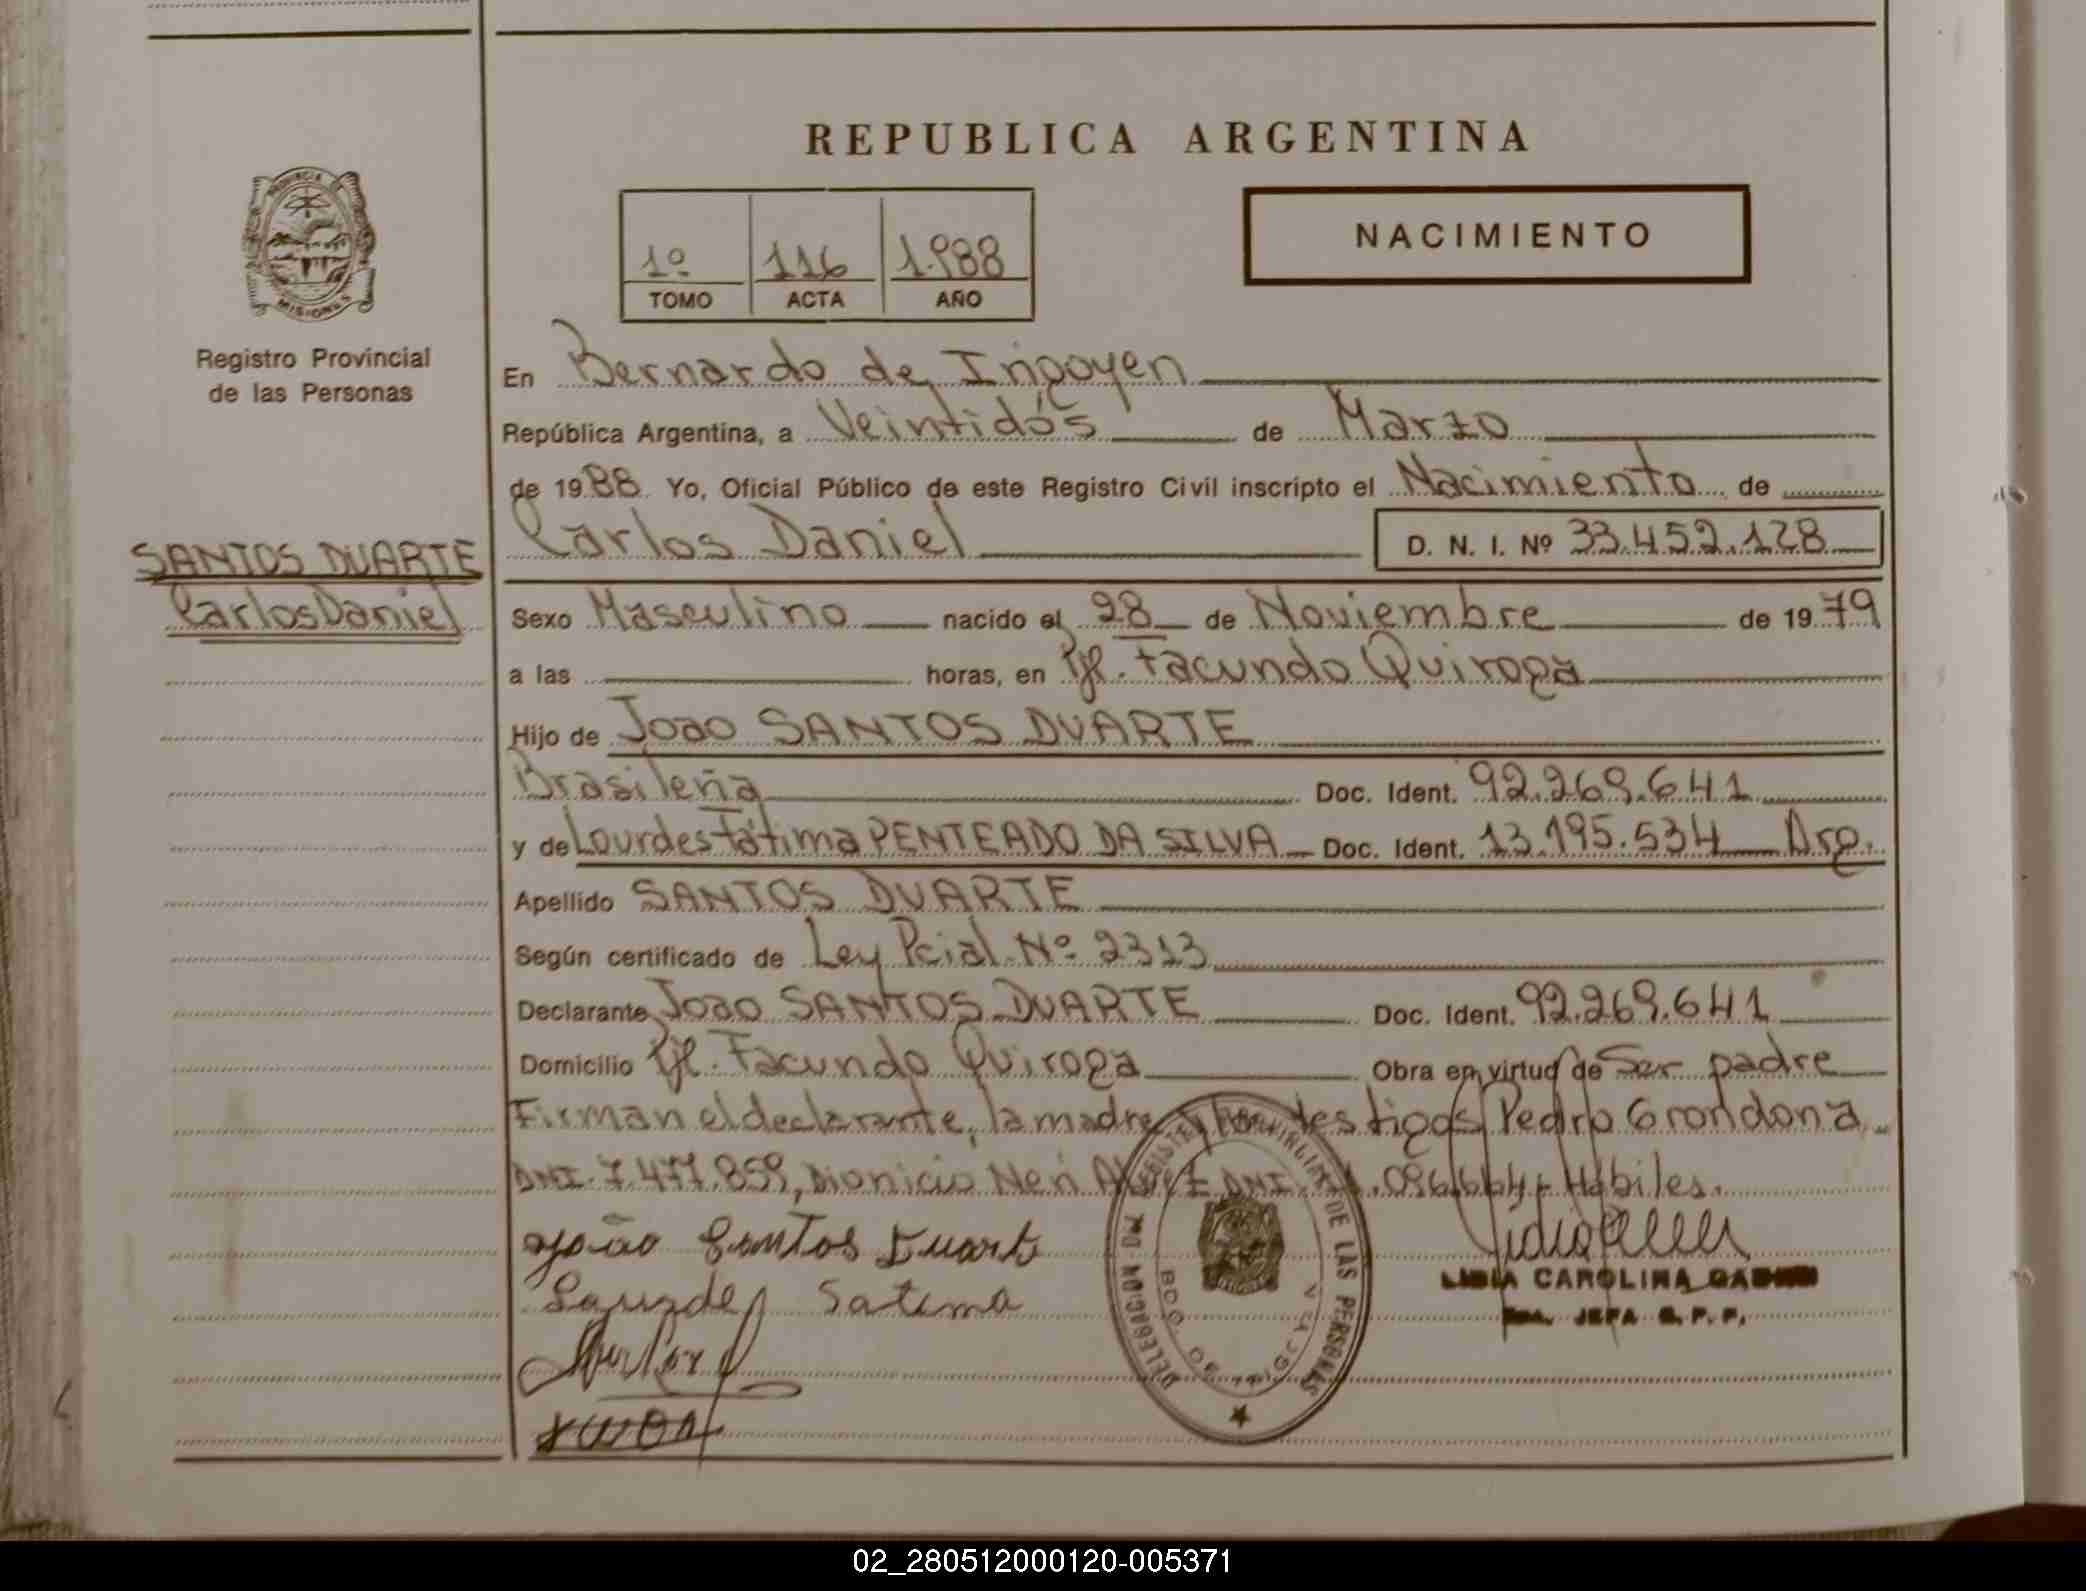 REPUBLICA ARGENTINA
PROVINCIA DE
MISIONES
Registro Provincial
de las Personas
1º 116 1.988
TOMO ACTA AÑO
NACIMIENTO
En Bernardo de Irigoyen
República Argentina, a Veintidós de Marzo
de 1988 Yo, Oficial Público de este Registro Civil inscripto el Nacimiento de
Carlos Daniel D. N. I. Nº 33.452.128
SANTOS DUARTE
Carlos Daniel
Sexo Masculino nacido el 28 de Noviembre de 1979
a las horas, en Pje. Facundo Quiroga
Hijo de Joao SANTOS DUARTE
Brasileña Doc. Ident. 92.269.641
y de Lourdes Fátima PENTEADO DA SILVA Doc. Ident. 13.195.534 Arg.
Apellido SANTOS DUARTE
Según certificado de Ley Pcial. Nº 2313
Declarante Joao SANTOS DUARTE Doc. Ident. 92.269.641
Domicilio Pje. Facundo Quiroga Obra en virtud de Ser padre
Firman el declarante, la madre y los testigos Pedro Grondona
DNI. 7.477.859, Dionicio Neri DNI. .096.664 - Hábiles.
João Santos Duarte
Lourdes Fatima
LIDIA CAROLINA
JEFA R. P. P.
DELEGACION DEL REGISTRO PROVINCIAL DE LAS PERSONAS
BDO. DE IRIGOYEN
02_280512000120-005371